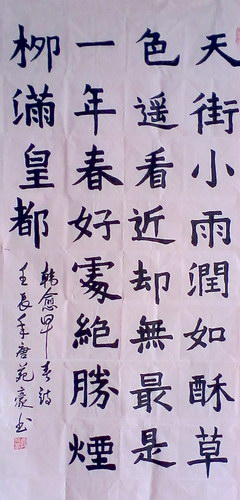 天街小雨潤如酥草
色遥看近却無最是
一年春好處絶勝煙
柳滿皇都
韓愈早春詩
壬辰年唐苑豪书